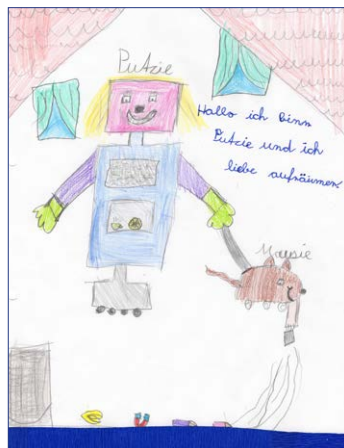 Putzie
Hallo ich binn
Putzie und ich
liebe aufräumen
Mausie